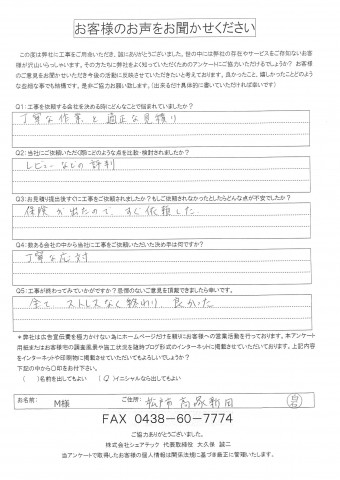 お客様のお声をお聞かせください
この度は弊社に工事をご用命いただき、誠にありがとうございました。世の中には弊社の存在やサービスをご存知ないお客
様が沢山いらっしゃいます。その方たちに弊社をよく知っていただくためのアンケートにご協力いただけるでしょうか? お客
様のご意見をお聞かせいただき今後の活動に反映させていただきたいと考えております。良かったこと、嬉しかったことどのよう
な些細な事でも結構です。是非ご協力お願い致します。(出来るだけ具体的に書いていただければ幸いです)
Q1:工事を依頼する会社を決める時にどんなことで悩まれていましたか?
丁寧な作業と適正な見積り
Q2:当社にご依頼いただく際にどのような点を比較・検討されましたか?
レビューなどの評判
Q3:お見積り提出後すぐに工事をご依頼されましたか?もしご依頼されなかったとしたらどんな点が不安でしたか?
保険が出たので、すぐ依頼した
Q4:数ある会社の中から当社に工事をご依頼いただいた決め手は何ですか?
丁寧な応対
Q5:工事が終わってみていかがですか?忌憚のないご意見を頂戴できましたら幸いです。
全て ストレスなく 終わり 良かった
*弊社は広告宣伝費を極力かけない為にホームページだけを頼りにお客様への営業活動を行っております。本アンケート
用紙またはお客様宅の調査風景や施工状況を随時ブログ形式のインターネットに掲載させていただいております。上記内容
をインターネットや印刷物に掲載させていただいてもよろしいでしょうか?
下記の中から〇印をお付下さい。
( )名前を出してもよい (〇)イニシャルなら出してもよい
お名前: M様 ご住所: 松戸市高塚新田
FAX 0438-60-7774
ご協力ありがとうございました。
株式会社シェアテック 代表取締役 大久保 誠二
当アンケートで取得したお客様の個人情報は関係法規に基づき厳正に管理いたします。